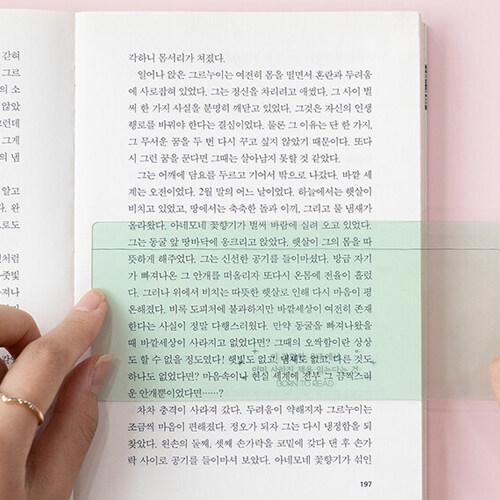 갇혀
그르
의 소
않았
그런데
그게
의 냄
알고
다. 완
로도
전처럼
굿빛
라져나
각
각하니 몸서리가 쳐졌다.
일어나 앉은 그르누이는 여전히 몸을 떨면서 혼란과 두려움
에 사로잡혀 있었다. 그는 정신을 차리려고 애썼다. 그 사이 벌
써 한 가지 사실을 분명히 깨닫고 있었다. 그것은 자신의 인생
행로를 바꿔야 한다는 결심이었다. 물론 그 이유는 단 한 가지,
그 무서운 꿈을 두 번 다시 꾸고 싶지 않았기 때문이다. 또다
시 그런 꿈을 꾼다면 그때는 살아남지 못할 것 같았다.
그는 어깨에 담요를 두르고 기어서 밖으로 나갔다. 바깥 세
계는 오전이었다. 2월 말의 어느 날이었다. 하늘에서는 햇살이
비치고 있었고, 땅에서는 축축한 돌과 이끼, 그리고 물 냄새가
올라왔다. 아네모네 꽃향기가 벌써 바람에 실려 오고 있었다.
그는 동굴 앞 땅바닥에 웅크리고 앉았다. 햇살이 그의 몸을 따
뜻하게 해주었다. 그는 신선한 공기를 들이마셨다. 방금 자기
가 빠져나온 그 안개를 떠올리자 또다시 온몸에 전율이 흘렀
다. 그러나 위에서 비치는 따뜻한 햇살로 인해 다시 마음이 평
온해졌다. 비록 도피처에 불과하지만 바깥세상이 여전히 존재
한다는 사실이 정말 다행스러웠다. 만약 동굴을 빠져나왔을
때 바깥세상이 사라지고 없었다면? 그때의 오싹함이란 상상
도 할 수 없을 정도였다! 햇빛도 없고 냄새도 없고, 다른 것도
하나도 없었다면? 마음속이나 현실 세계에 전부 그 끔찍스러
운 안개뿐이었다면……?
BORN TO READ
차차 충격이 사라져 갔다. 두려움이 약해지자 그르누이는
조금씩 마음이 편해졌다. 정오가 되자 그는 다시 냉정함을 되
찾았다. 왼손의 둘째, 셋째 손가락을 코밑에 갖다 댄 후 손가
락 사이로 공기를 들이마셔 보았다. 아네모네 꽃향기가 섞인
197